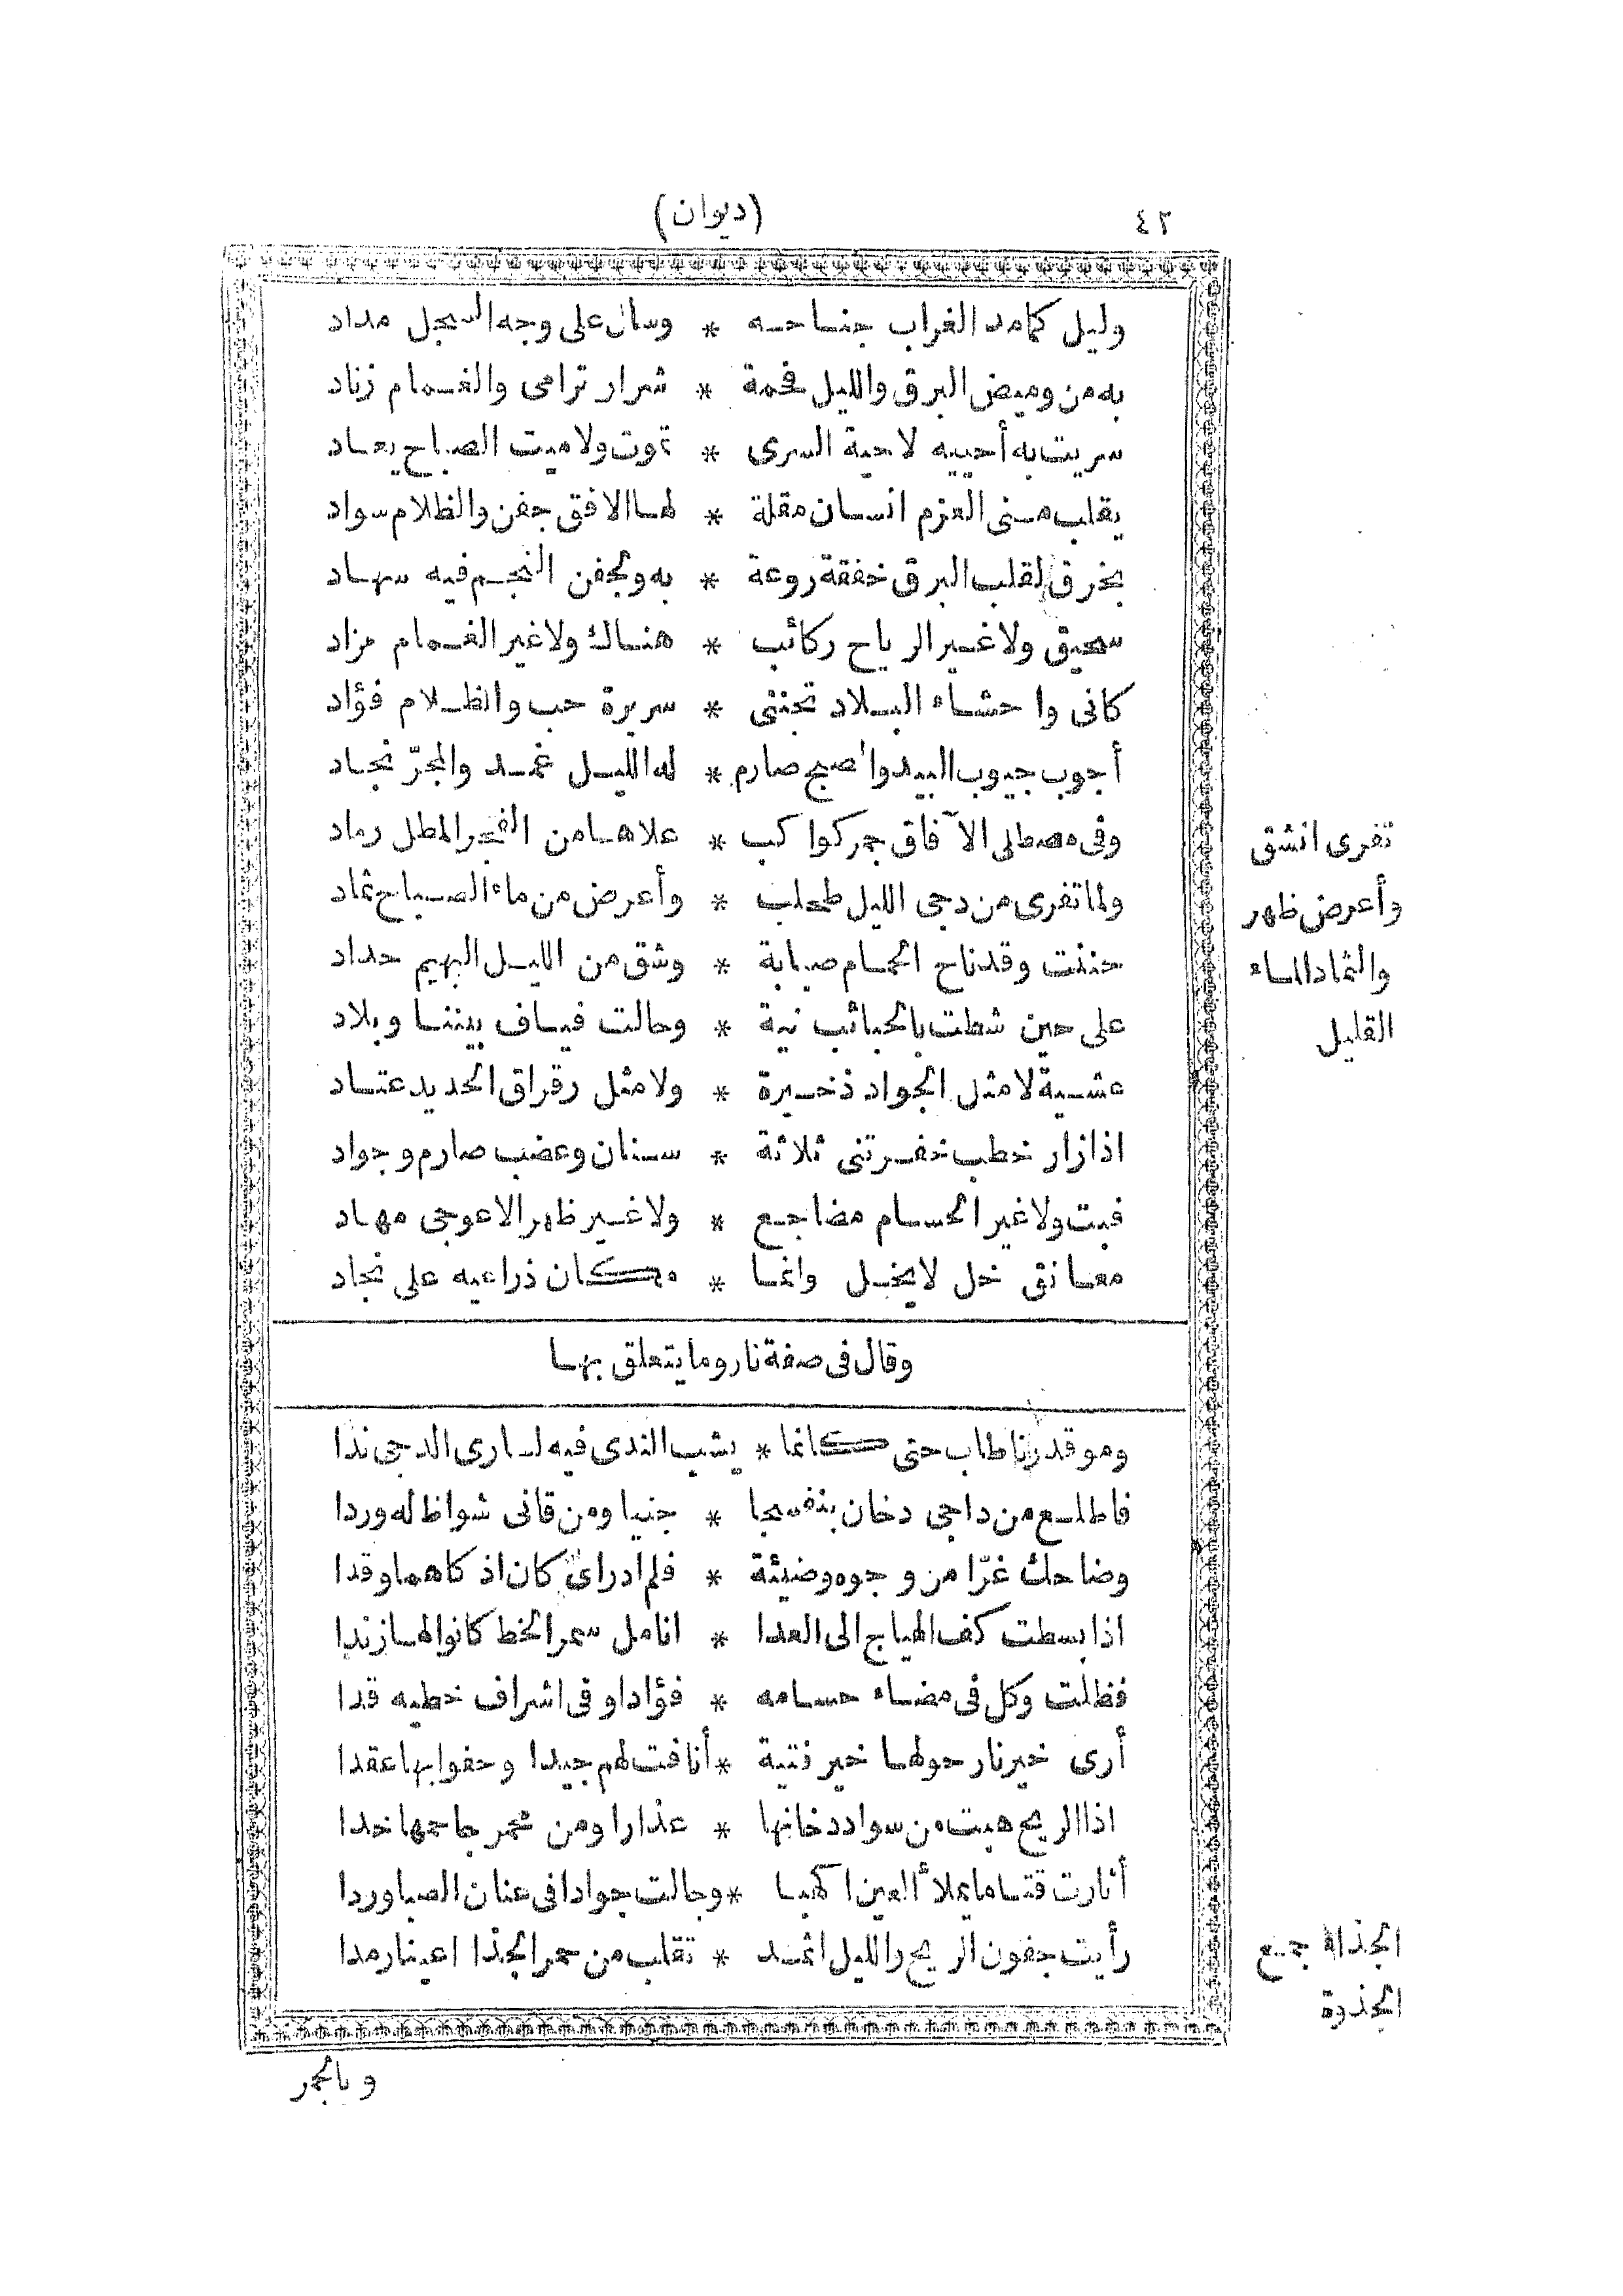 ٤٢
(ديوان)
وليل كمامد الغراب جناحه * وسال على وجه السجل مداد
به من وميض البرق والليل فحمة * شرار ترامى والغمام زناد
سريت به أحييه لا حية السرى * تموت ولا ميت الصباح يعاد
يقلب منى العزم انسان مقلة * لها الافق جفن والظلام سواد
بخرق لقلب البرق خفقة روعة * به ولجفن النجم فيه سهاد
سحيق ولا غير الرياح ركائب * هناك ولا غير الغمام مزاد
كانى وا حشاء البلاد تجننى * سريرة حب والظلام فؤاد
أجوب جيوب البيد والصبح صارم * له الليل غمد والمجرّ نجاد
وفى مصطلى الآفاق جمر كواكب * علاها من الفجر المطل رماد
ولما تفرى من دجى الليل طحلب * وأعرض من ماء الصباح ثماد
تفرى انشق
وأعرض ظهر
والثماد الماء
القليل
حننت وقد ناح الحمام صبابة * وشق من الليل البهيم حداد
على حين شطت بالحبائب نية * وحالت فياف بيننا وبلاد
عشية لا مثل الجواد ذخيرة * ولا مثل رقراق الحديد عتاد
اذا زار خطب خفرتنى ثلاثة * سنان وعضب صارم وجواد
فبت ولا غير الحسام مضاجع * ولا غير ظهر الاعوجى مهاد
معانق خل لا يخل وانما * مكان ذراعيه على نجاد
وقال فى صفة نار وما يتعلق بها
وموقد نار طاب حتى كانما * يشب الندى فيه لسارى الدجى ندا
فاطلع من داجى دخان بنفسجا * جنيا ومن قانى شواظ له وردا
وضاحك غرّا من وجوه وضيئة * فلم ادر اى كان اذكاهما وقدا
اذا بسطت كف الهياج الى العدا * انامل سمر الخط كانوا لها زندا
فظلت وكل فى مضاء حسامه * فؤادا وفى اشراف خطيه قدا
أرى خير نار حولها خير فتية * أنافت لهم جيدا وحفوا بها عقدا
اذا الريح هبت من سواد دخانها * عذارا ومن محمر جاحمها خدا
أثارت قتاما يملأ العين اكهبا * وجالت جوادا فى عنان الصبا وردا
رأيت جفون الريح والليل اثمد * تقلب من حمر الجذا اعينا رمدا
الجذاة جمع
الجذوة
وبالجمر